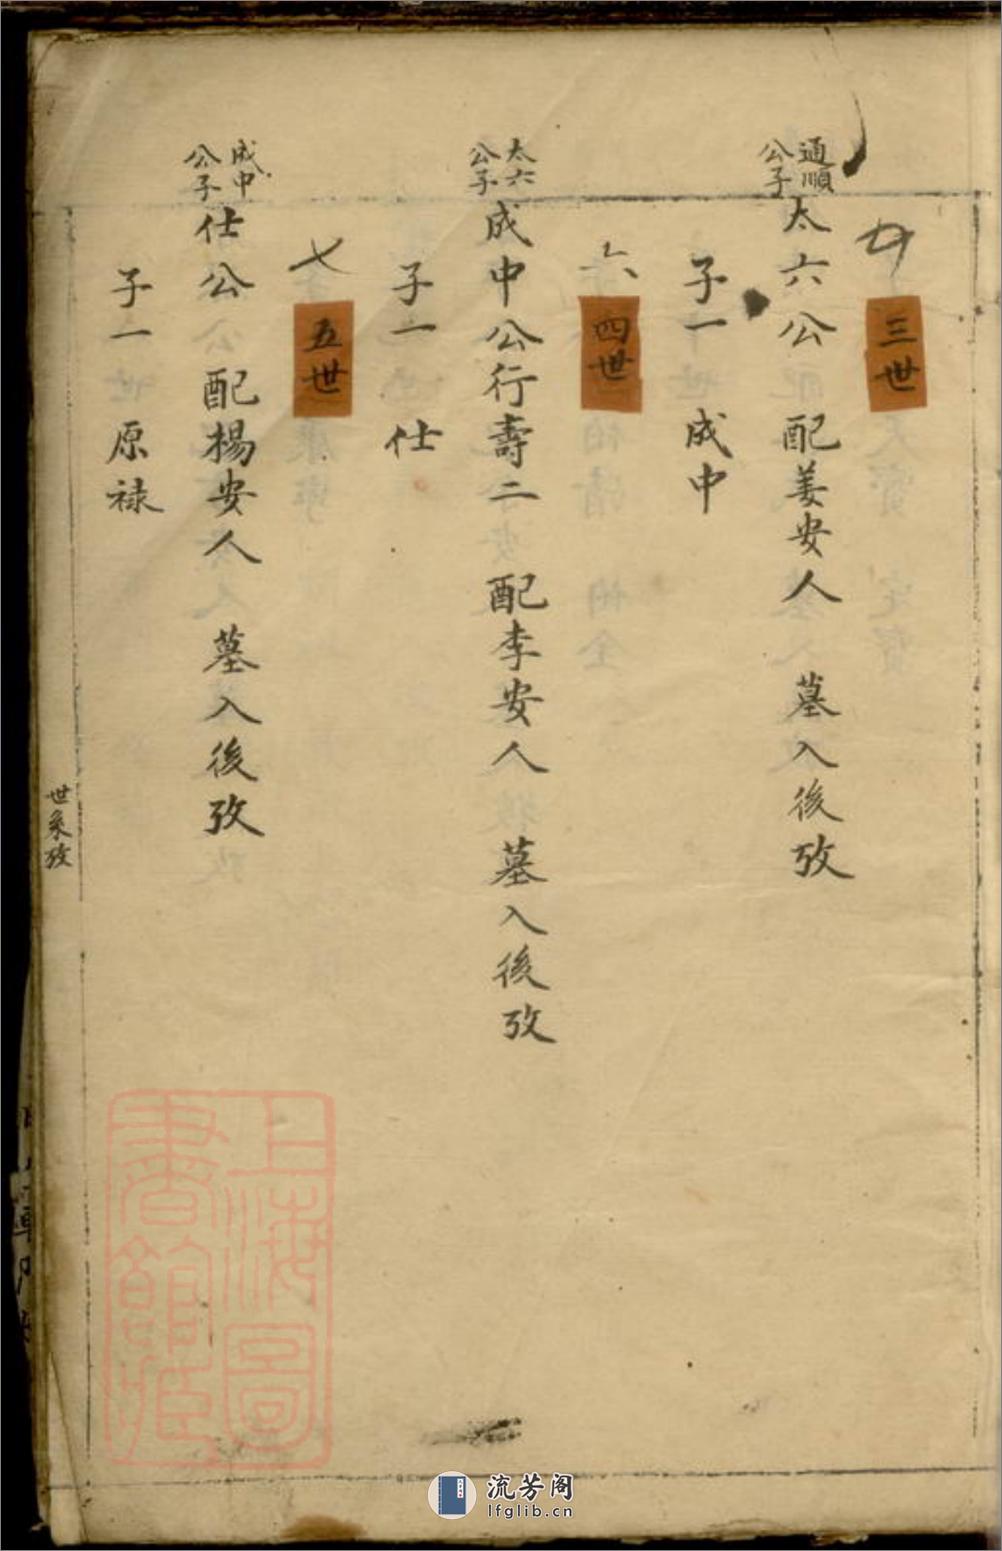 三世
通順公子 太六公 配姜安人 墓入後攷
子一 成中
六
四世
太六公子 成中公行壽二 配李安人 墓入後攷
子一 仕
七
五世
成中公子 仕公 配楊安人 墓入後攷
子一 原祿
世系攷
上海圖書館藏
流芳阁
lfglib.cn